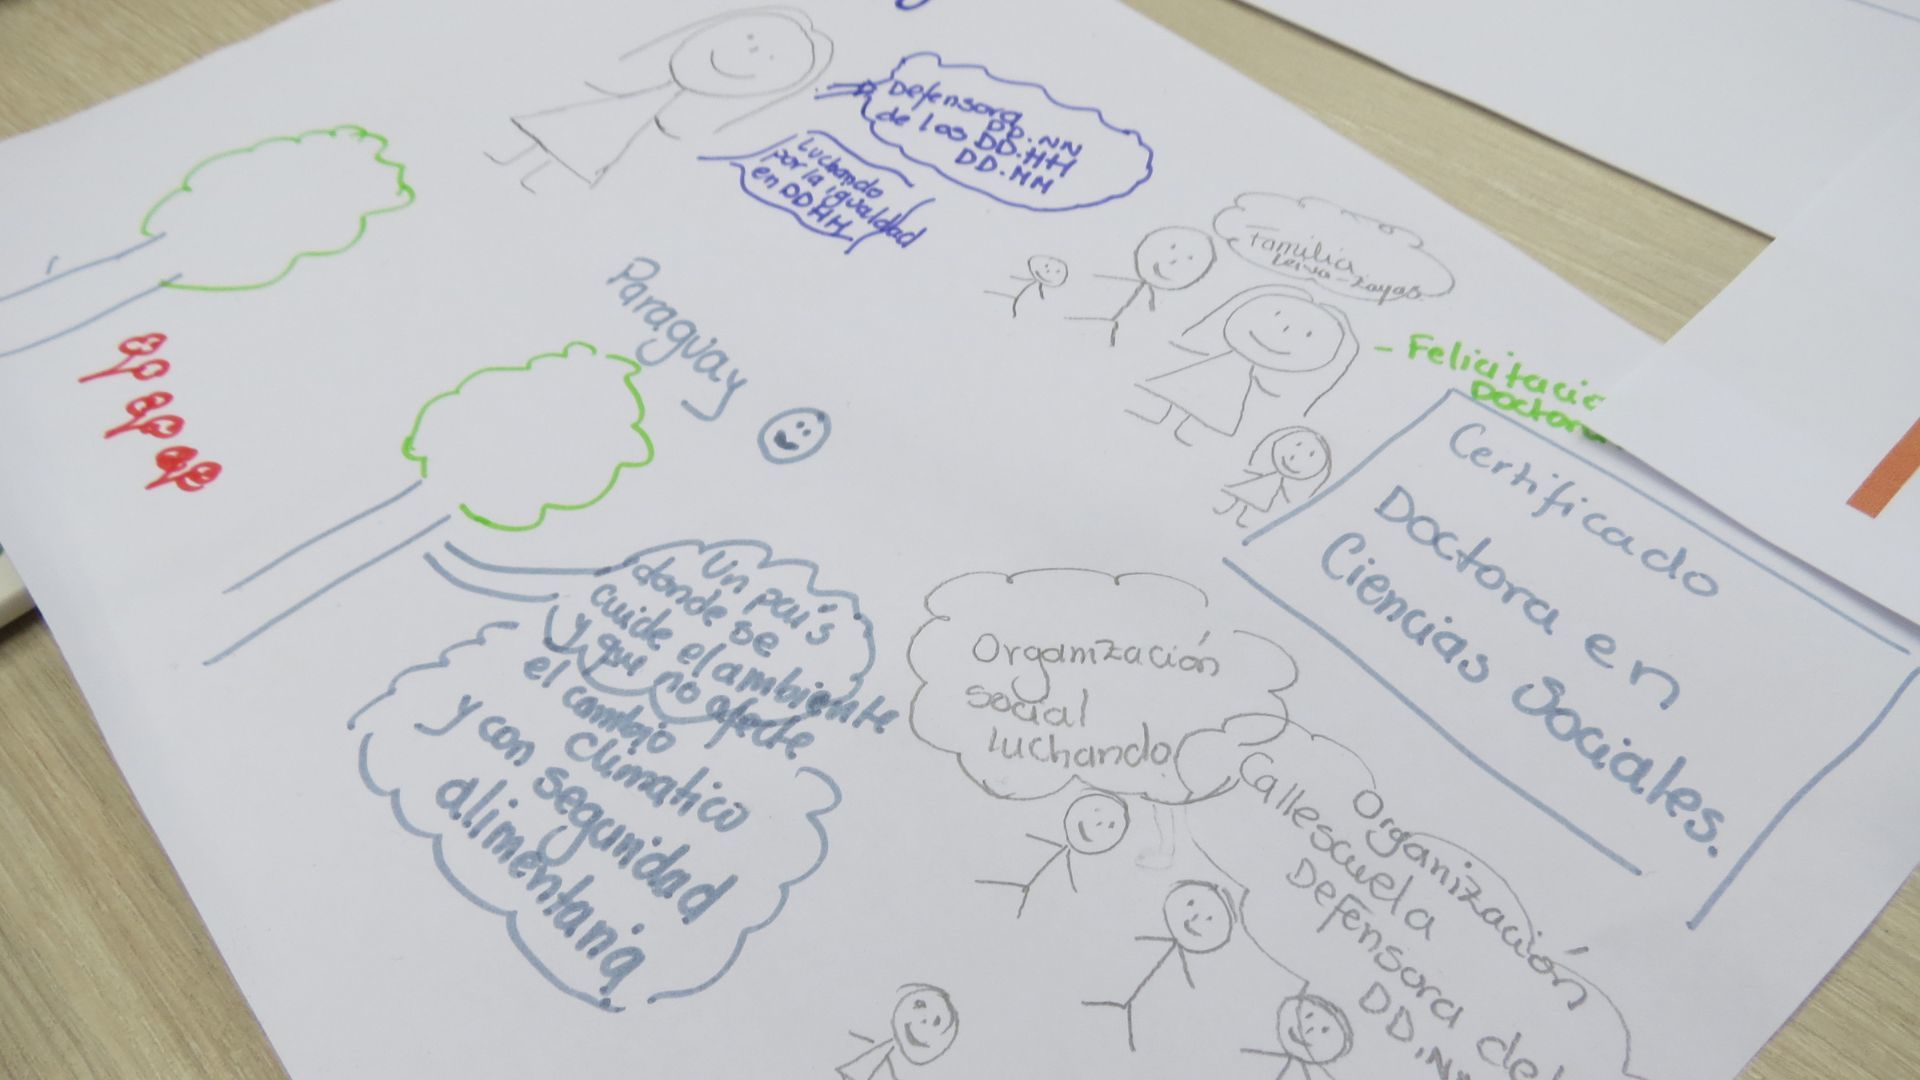 Defensora
DD.NN
de los DD.HH
DD.NN
Luchando
por la igualdad
en DDHH
Paraguay
Familia
Leiva-Zayas
- Felicitacio
Doctora
Certificado
Doctora en
Ciencias Sociales.
Un país
donde se
cuide el ambiente
y que no afecte
el cambio
climatico
y con seguridad
alimentaria
Organización
social
luchando
Organización
Callescuela
Defensora de
DD.N